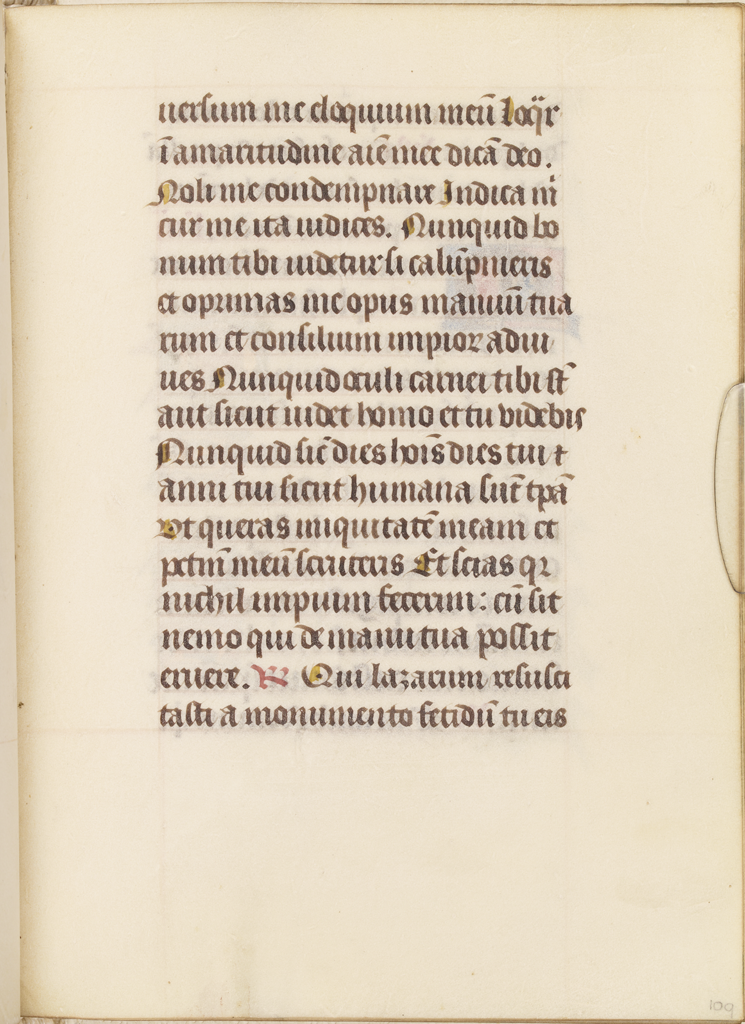 uersum me eloquium meū Loq̈r
ī amaritudine aīe mee dicā deo.
Noli me condempnare Indica m̄
cur me ita iudices. Nunquid bo
num tibi uidetur si calūpnieris
et oprimas me opus manuū tua
rum et consilium impior adiu
ues Nunquid oculi carnei tibi st̄
aut sicut uidet homo et tu videbis
Nunquid sic̄ dies hoīs dies tui ⁊
anni tui sicut humana sūt tp̄a
Ut queras iniquitatē meam et
pctm̄ meū scruteris Et scias qꝛ
nichil impium fecerim: cū sit
nemo qui de manu tua possit
eruere. R Qui lazarum resusci
tasti a monumento fetidū tu eis
109